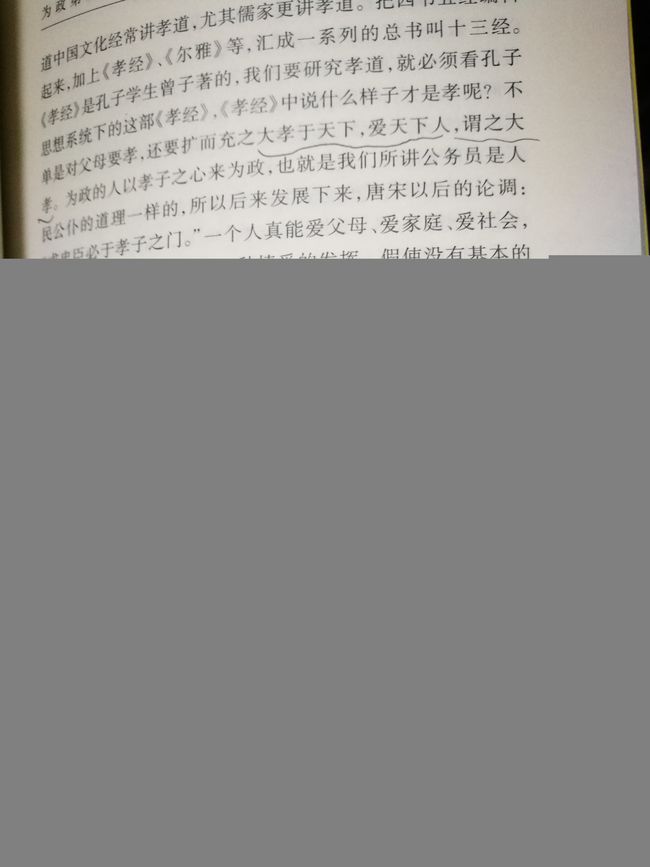 为政第
道中国文化经常讲孝道，尤其儒家更讲孝道。把四书五经编
起来，加上《孝经》、《尔雅》等，汇成一系列的总书叫十三经。
《孝经》是孔子学生曾子著的，我们要研究孝道，就必须看孔子
思想系统下的这部《孝经》，《孝经》中说什么样子才是孝呢？不
单是对父母要孝，还要扩而充之大孝于天下，爱天下人，谓之大
孝。为政的人以孝子之心来为政，也就是我们所讲公务员是人
民公仆的道理一样的，所以后来发展下来，唐宋以后的论调：
忠臣必于孝子之门。”一个人真能爱父母、爱家庭、爱社会，
的发挥。假使没有基本的